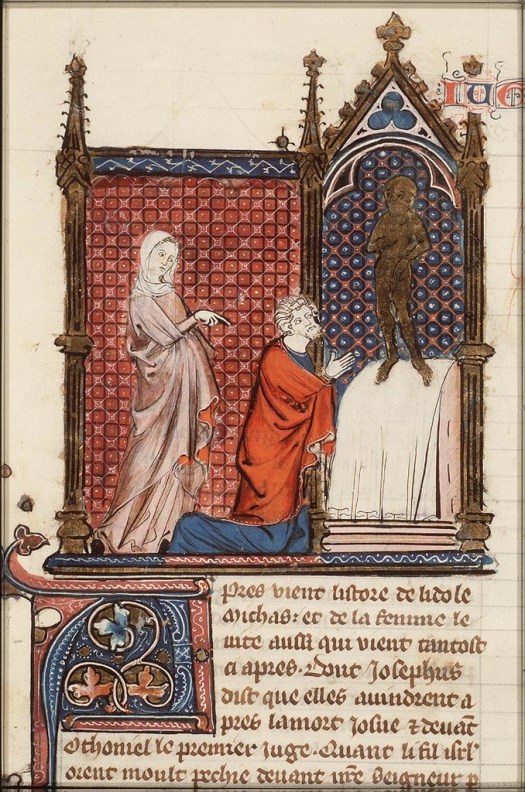 IUG
Apres vient listore de lidole
Michas: et de la femme le
uite aussi qui vient tantost
ci apres. Dont Josephus
dist que elles auindrent a
pres lamort Josue ⁊ deuant
Othoniel le premier Juge. Quant li fil isrl'
orent moult pechie deuant nre seigneur p